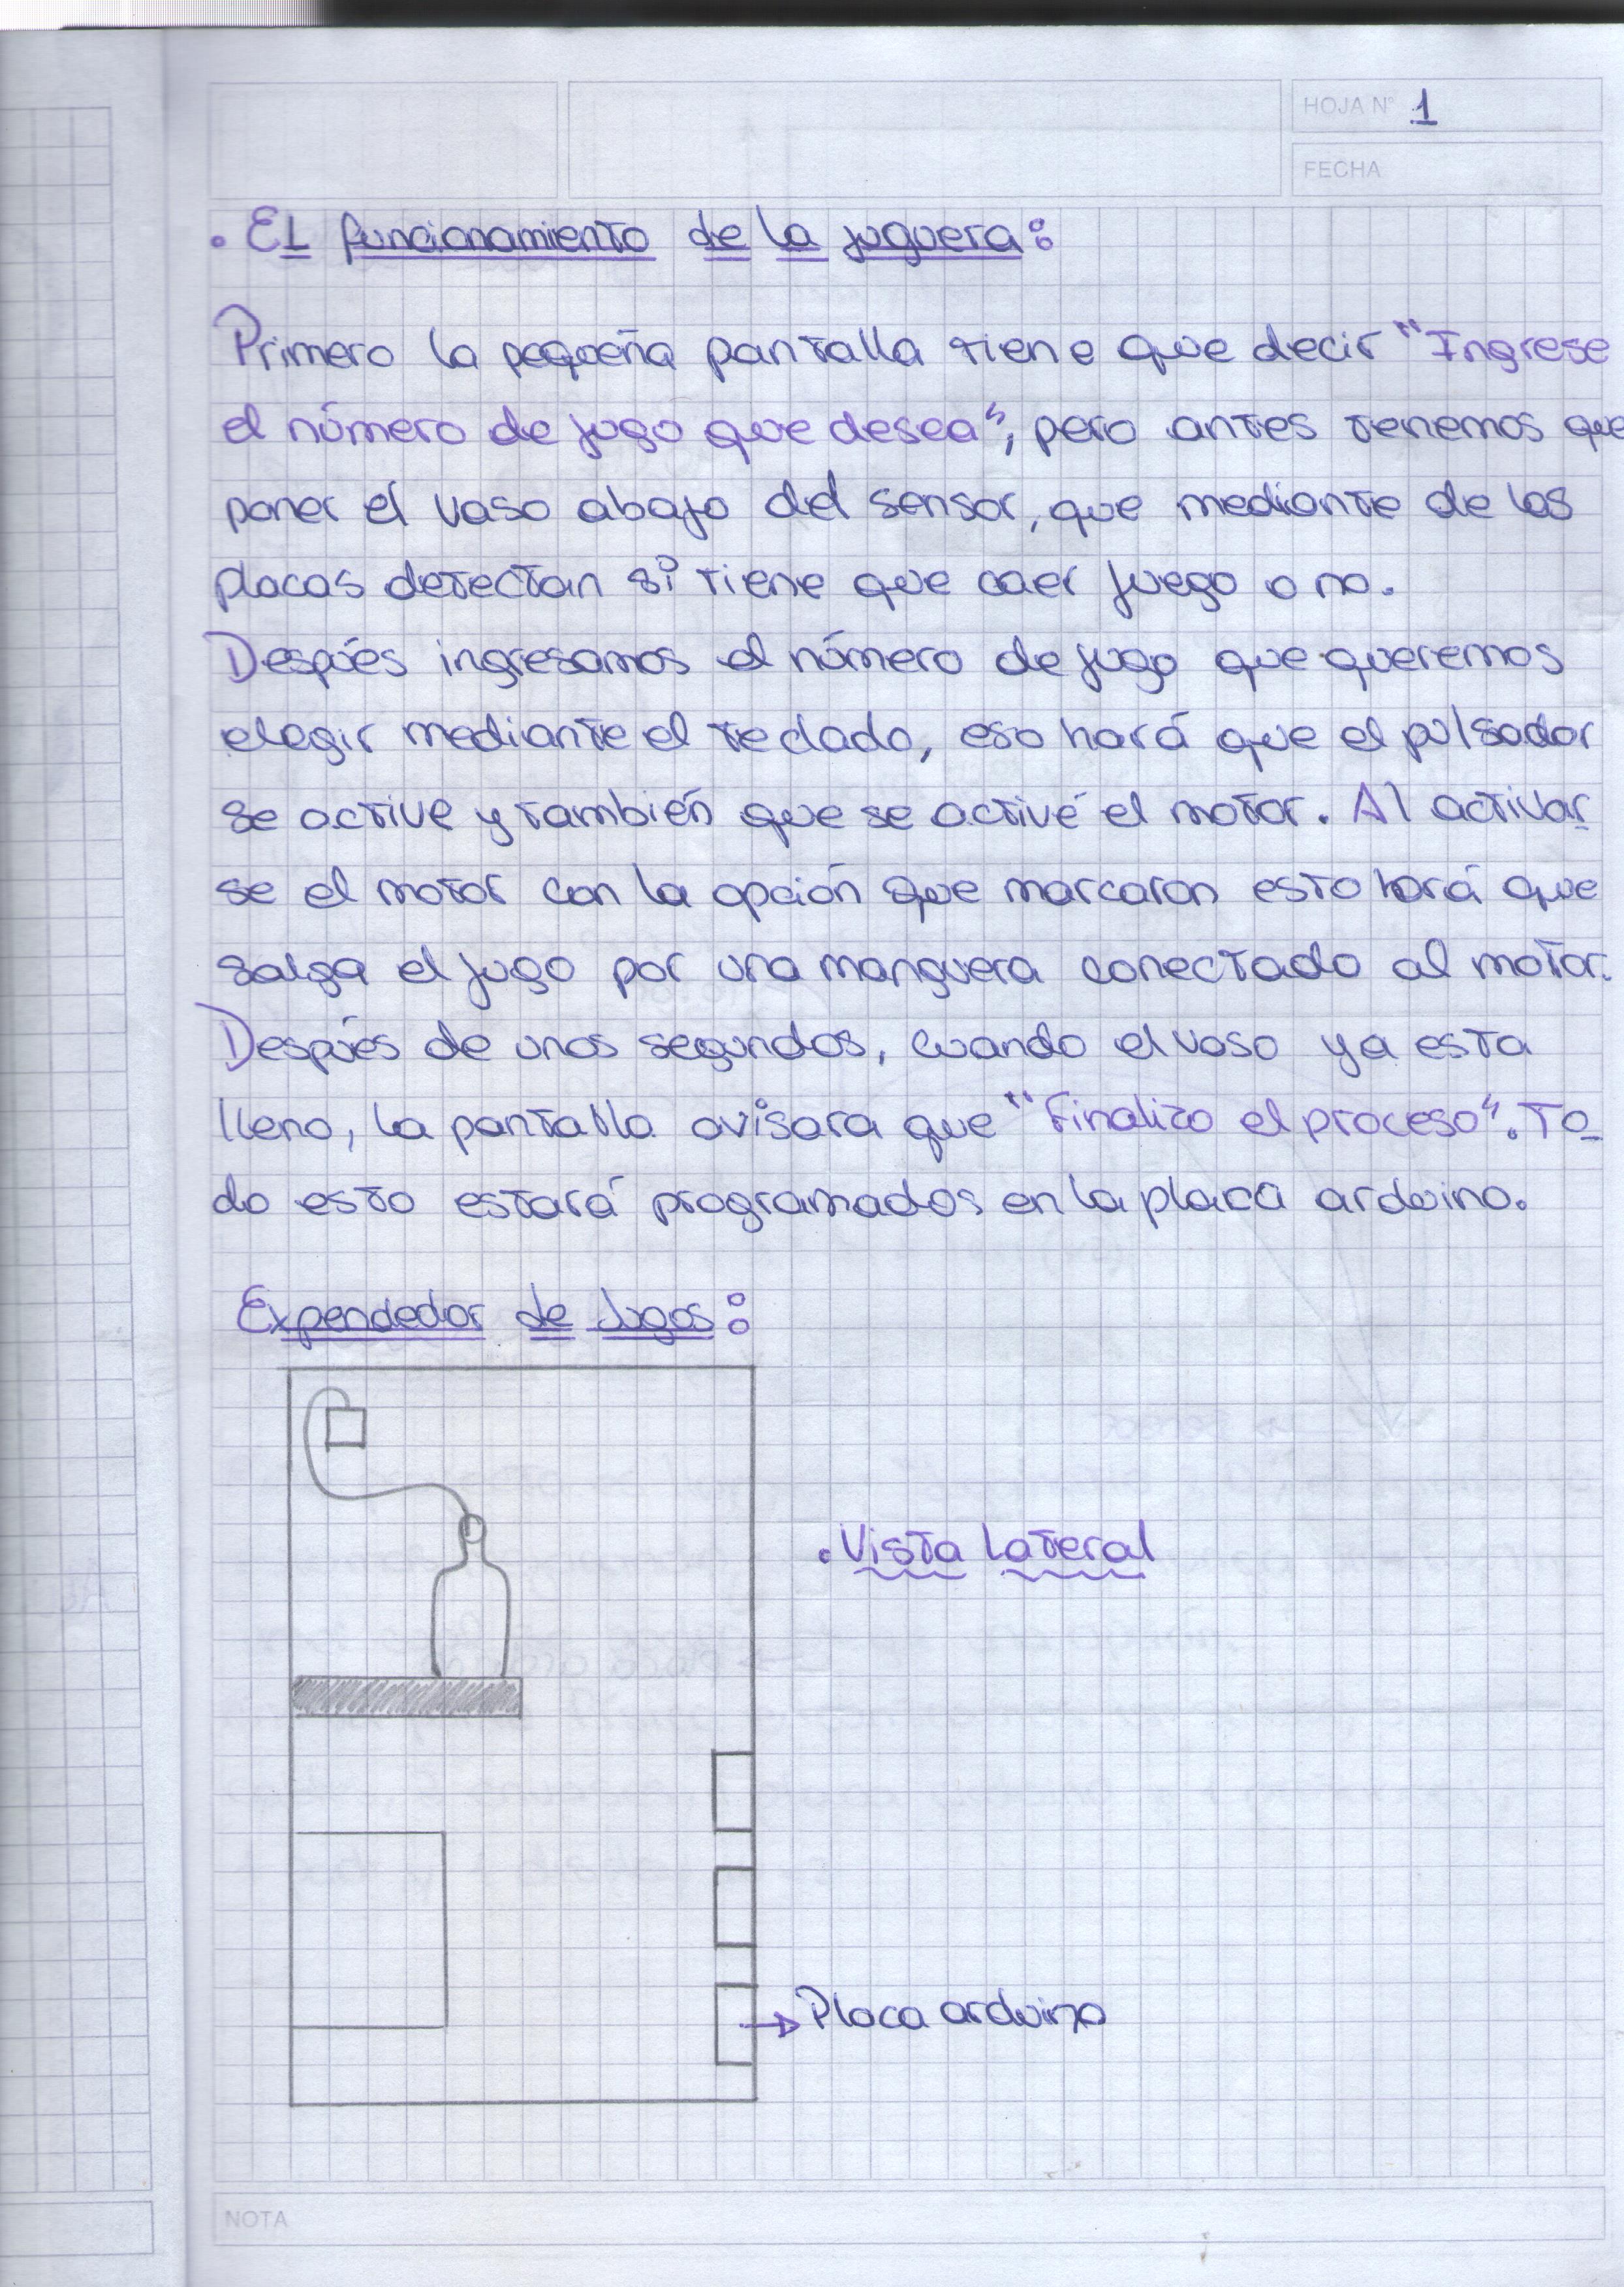 HOJA N° 1
FECHA
• EL funcionamiento de la juguera:
Primero la pequeña pantalla tiene que decir "Ingrese
el número de jugo que desea", pero antes tenemos que
poner el vaso abajo del sensor, que mediante de las
placas detectan si tiene que caer juego o no.
Después ingresamos el número de jugo que queremos
elegir mediante el teclado, eso hará que el pulsador
se active y también que se active el motor. Al activar
se el motor con la opción que marcaron esto hará que
salga el jugo por una manguera conectado al motor.
Después de unos segundos, cuando el vaso ya esta
lleno, la pantalla avisara que "Finalizo el proceso". To
do esto estará programados en la placa arduino.
Expendedor de Jugos:
• Vista Lateral
→ Placa arduino
NOTA